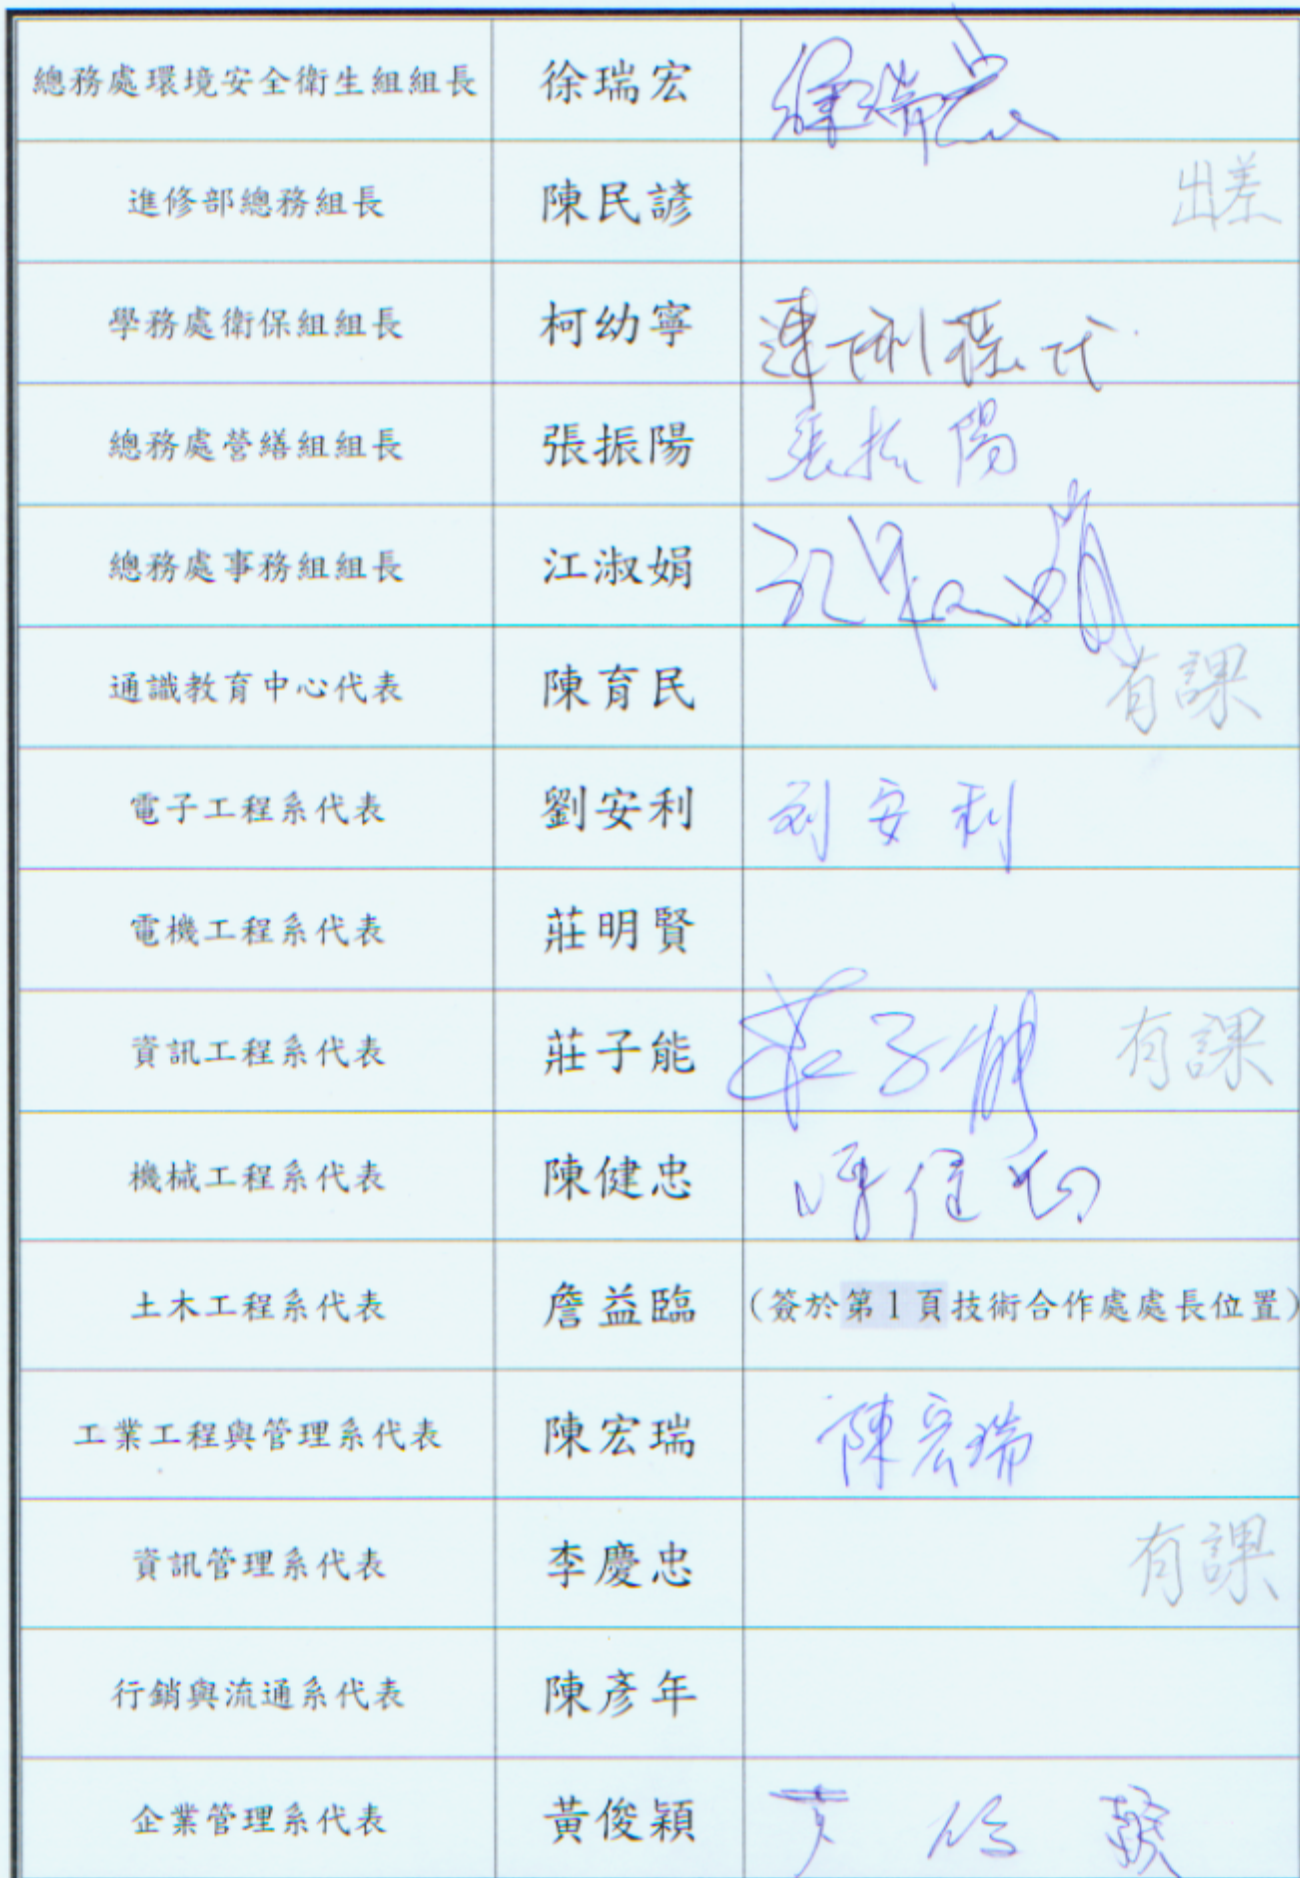 總務處環境安全衛生組組長 徐瑞宏 徐瑞宏
進修部總務組長 陳民諺 出差
學務處衛保組組長 柯幼寧 代
總務處營繕組組長 張振陽 張振陽
總務處事務組組長 江淑娟 江淑娟
通識教育中心代表 陳育民 有課
電子工程系代表 劉安利 刘安利
電機工程系代表 莊明賢
資訊工程系代表 莊子能 莊子能 有課
機械工程系代表 陳健忠 陳健忠
土木工程系代表 詹益臨 (簽於第1頁技術合作處處長位置)
工業工程與管理系代表 陳宏瑞 陳宏瑞
資訊管理系代表 李慶忠 有課
行銷與流通系代表 陳彥年
企業管理系代表 黃俊穎